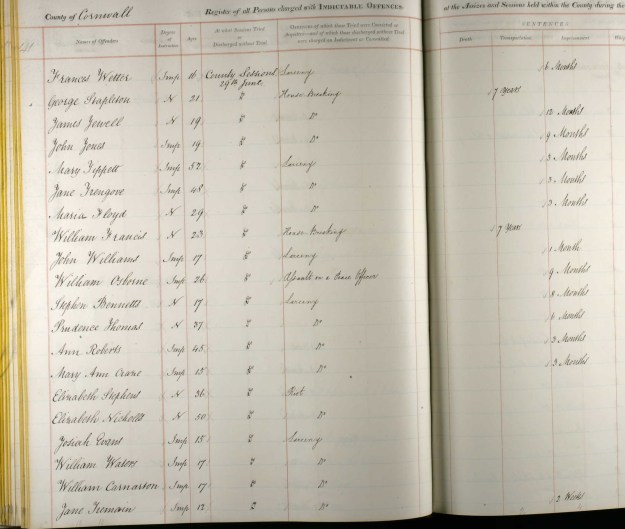 County of Cornwall
Register of all Persons charged with Indictable Offences at the Assizes and Sessions held within the County during the
Names of Offenders Degree of Instruction Ages At what Sessions Tried or Discharged without Trial Offences of which those Tried were Convicted or Acquitted—and of which those discharged without Trial were charged on Indictment or Committed
SENTENCES
Death Transportation Imprisonment
Francis Wetter Imp 16 County Sessions 29th June Larceny 6 Months
George Stapleton N 21 " House Breaking 7 Years
James Jewell N 19 " Do 12 Months
John Jones Imp 19 " Do 9 Months
Mary Tippett Imp 52 " Larceny 3 Months
Jane Trengove Imp 48 " Do 3 Months
Maria Floyd N 29 " Do 3 Months
William Francis N 23 " House Breaking 7 Years
John Williams Imp 17 " Larceny 1 Month
William Osborne Imp 26 " Assault on a Peace Officer 9 Months
Stephen Bennetts N 17 " Larceny 8 Months
Prudence Thomas N 37 " Do 6 Months
Ann Roberts Imp 45 " Do 3 Months
Mary Ann Crane Imp 15 " Do 3 Months
Elizabeth Stephens N 36 " Riot
Elizabeth Nicholls N 50 " Do
Josiah Evans Imp 15 " Larceny
William Waters Imp 17 " Do
William Carnarton Imp 17 " Do
Jane Tremain Imp 12 " Do 2 Weeks